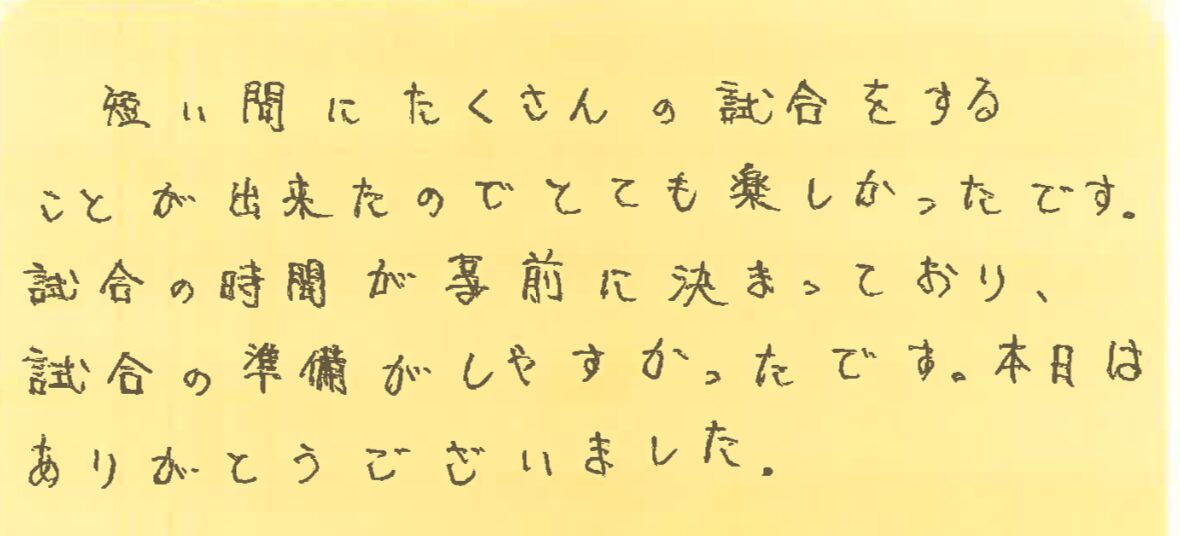 短い間にたくさんの試合をする
ことが出来たのでとても楽しかったです。
試合の時間が事前に決まっており、
試合の準備がしやすかったです。本日は
ありがとうございました。